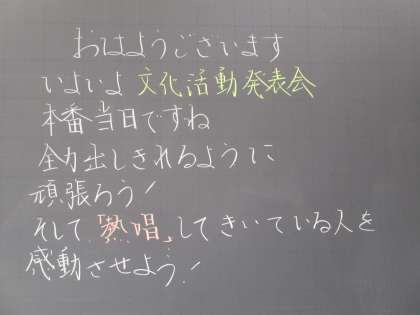 おはようございます
いよいよ文化活動発表会
本番当日ですね
全力出しきれるように
頑張ろう!
そして「熱唱」してきいている人を
感動させよう!